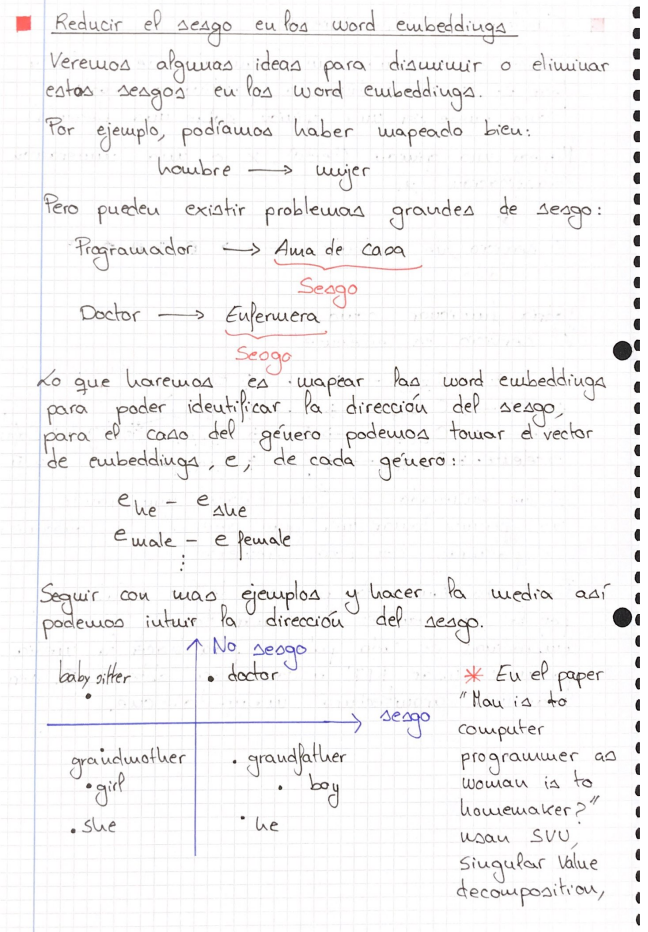 Reducir el sesgo en los word embeddings
Veremos algunas ideas para disminuir o eliminar
estos sesgos en los word embeddings.
Por ejemplo, podíamos haber mapeado bien:
hombre → mujer
Pero pueden existir problemas grandes de sesgo:
Programador → Ama de casa
Sesgo
Doctor → Enfermera
Sesgo
Lo que haremos es mapear las word embeddings
para poder identificar la dirección del sesgo,
para el caso del género podemos tomar el vector
de embeddings, e, de cada género:
e he - e she
e male - e female
⋮
Seguir con mas ejemplos y hacer la media así
podemos intuir la dirección del sesgo.
No sesgo
baby sitter
doctor
sesgo
grandmother
grandfather
girl
boy
she
he
* En el paper
"Man is to
computer
programmer as
woman is to
homemaker?"
usan SVU,
Singular Value
decomposition,